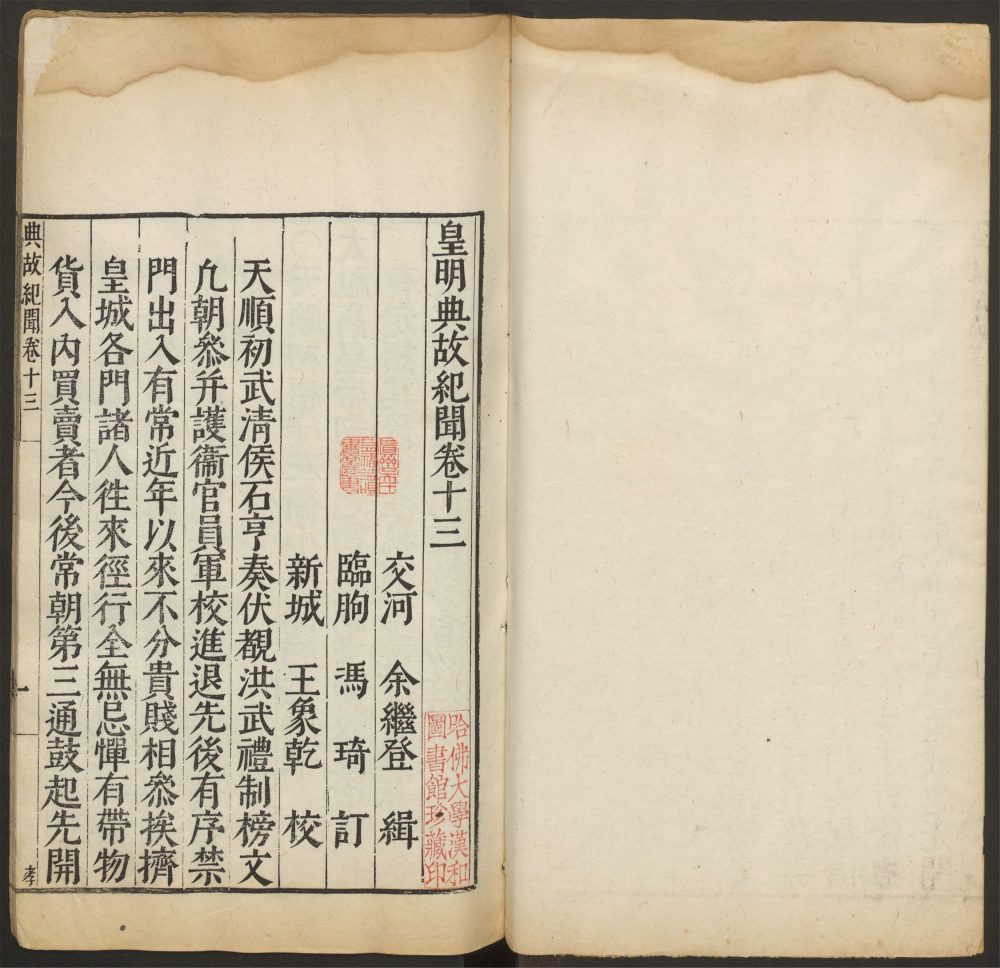 皇明典故紀聞卷十三
交河 余繼登 緝
臨朐 馮琦 訂
新城 王象乾 校
天順初武清侯石亨奏伏覩洪武禮制榜文
凢朝叅并護衞官員軍校進退先後有序禁
門出入有常近年以來不分貴賤相叅挨擠
皇城各門諸人徃來徑行全無忌憚有帶物
貨入內買賣者今後常朝第三通鼓起先開
典故紀聞卷十三
一
孝
哈佛大學漢和
圖書館珍藏印